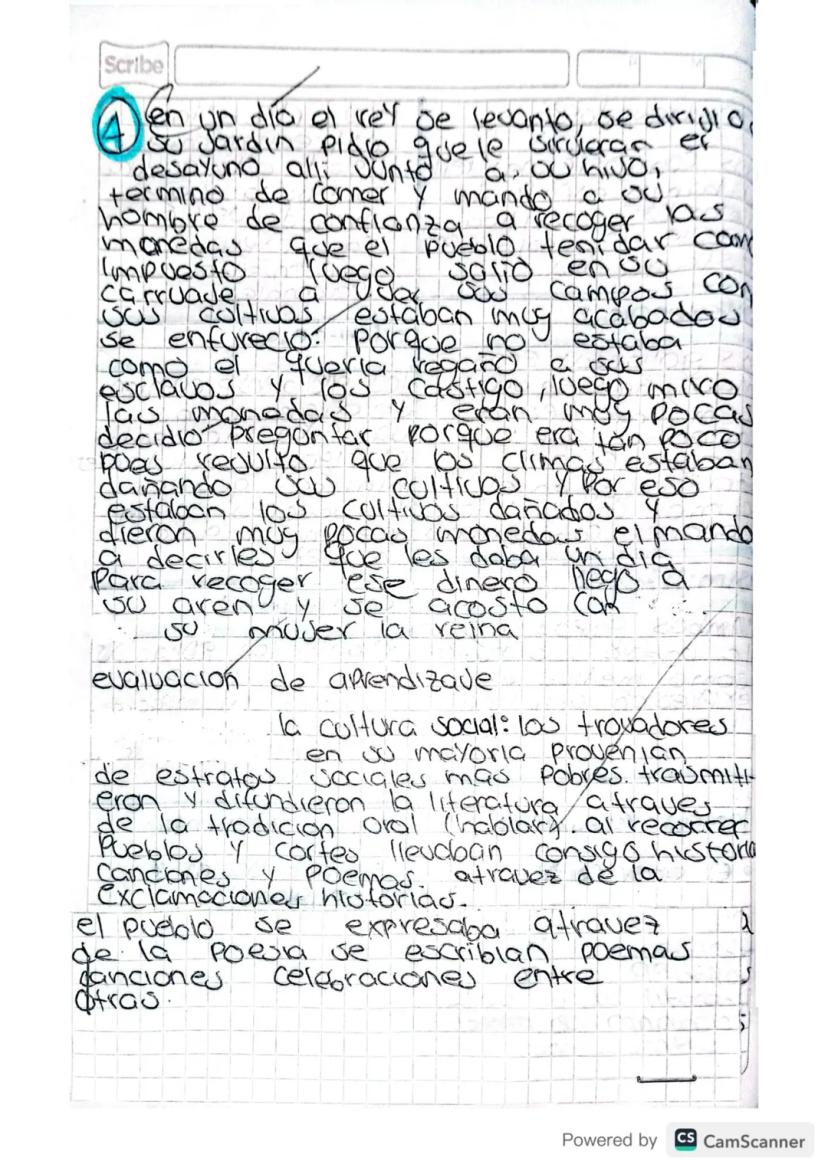 Scribe
4 en un dia el rey se levanto, se dirijio
su Jardin pidio que le sirvieran el
desayuno alli junto a su hijo,
termino de comer y mando a su
hombre de confianza a recoger las
monedas que el pueblo tenidar com
impuesto luego salio en su
carruaje a ver sus campos con
sus cultivos estaban muy acabados
se enfurecio: porque no estaba
como el queria regaño a sus
esclavos y los castigo, luego miro
las monedas y eran muy pocas
decidio preguntar porque era tan poco
pues resulto que los climas estaban
dañando sus cultivos y por eso
estaban los cultivos dañados y
dieron muy pocas monedas el mando
a decirles que les daba un dia
para recoger ese dinero llego a
su aren y se acosto con
su mujer la reina
evaluacion de aprendizaje
la cultura social: los trovadores
en su mayoria provenian
de estratos sociales mas pobres. trasmiti-
eron y difundieron la literatura atraves
de la tradicion oral (hablar). al recorrer
Pueblos y cortes llevaban consigo historia
canciones y poemas. atravez de la
exclamaciones historias.
el pueblo se expresaba atravez
de la poesia se escribian poemas
canciones celebraciones entre
otras.
Powered by CS CamScanner